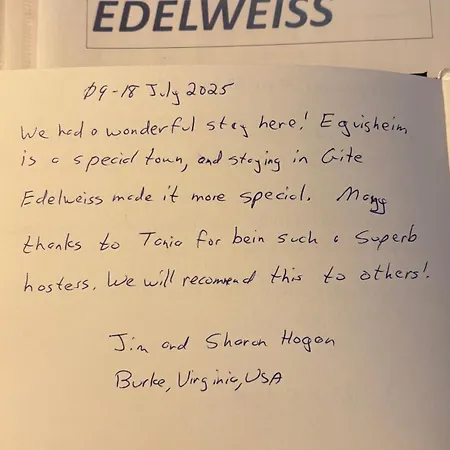 EDELWEISS
09-18 July 2025
We had a wonderful stay here! Eguisheim
is a special town, and staying in Gite
Edelweiss made it more special. Many
thanks to Tania for bein such a superb
hostess. We will recommend this to others!
Jim and Sharon Hogan
Burke, Virginia, USA